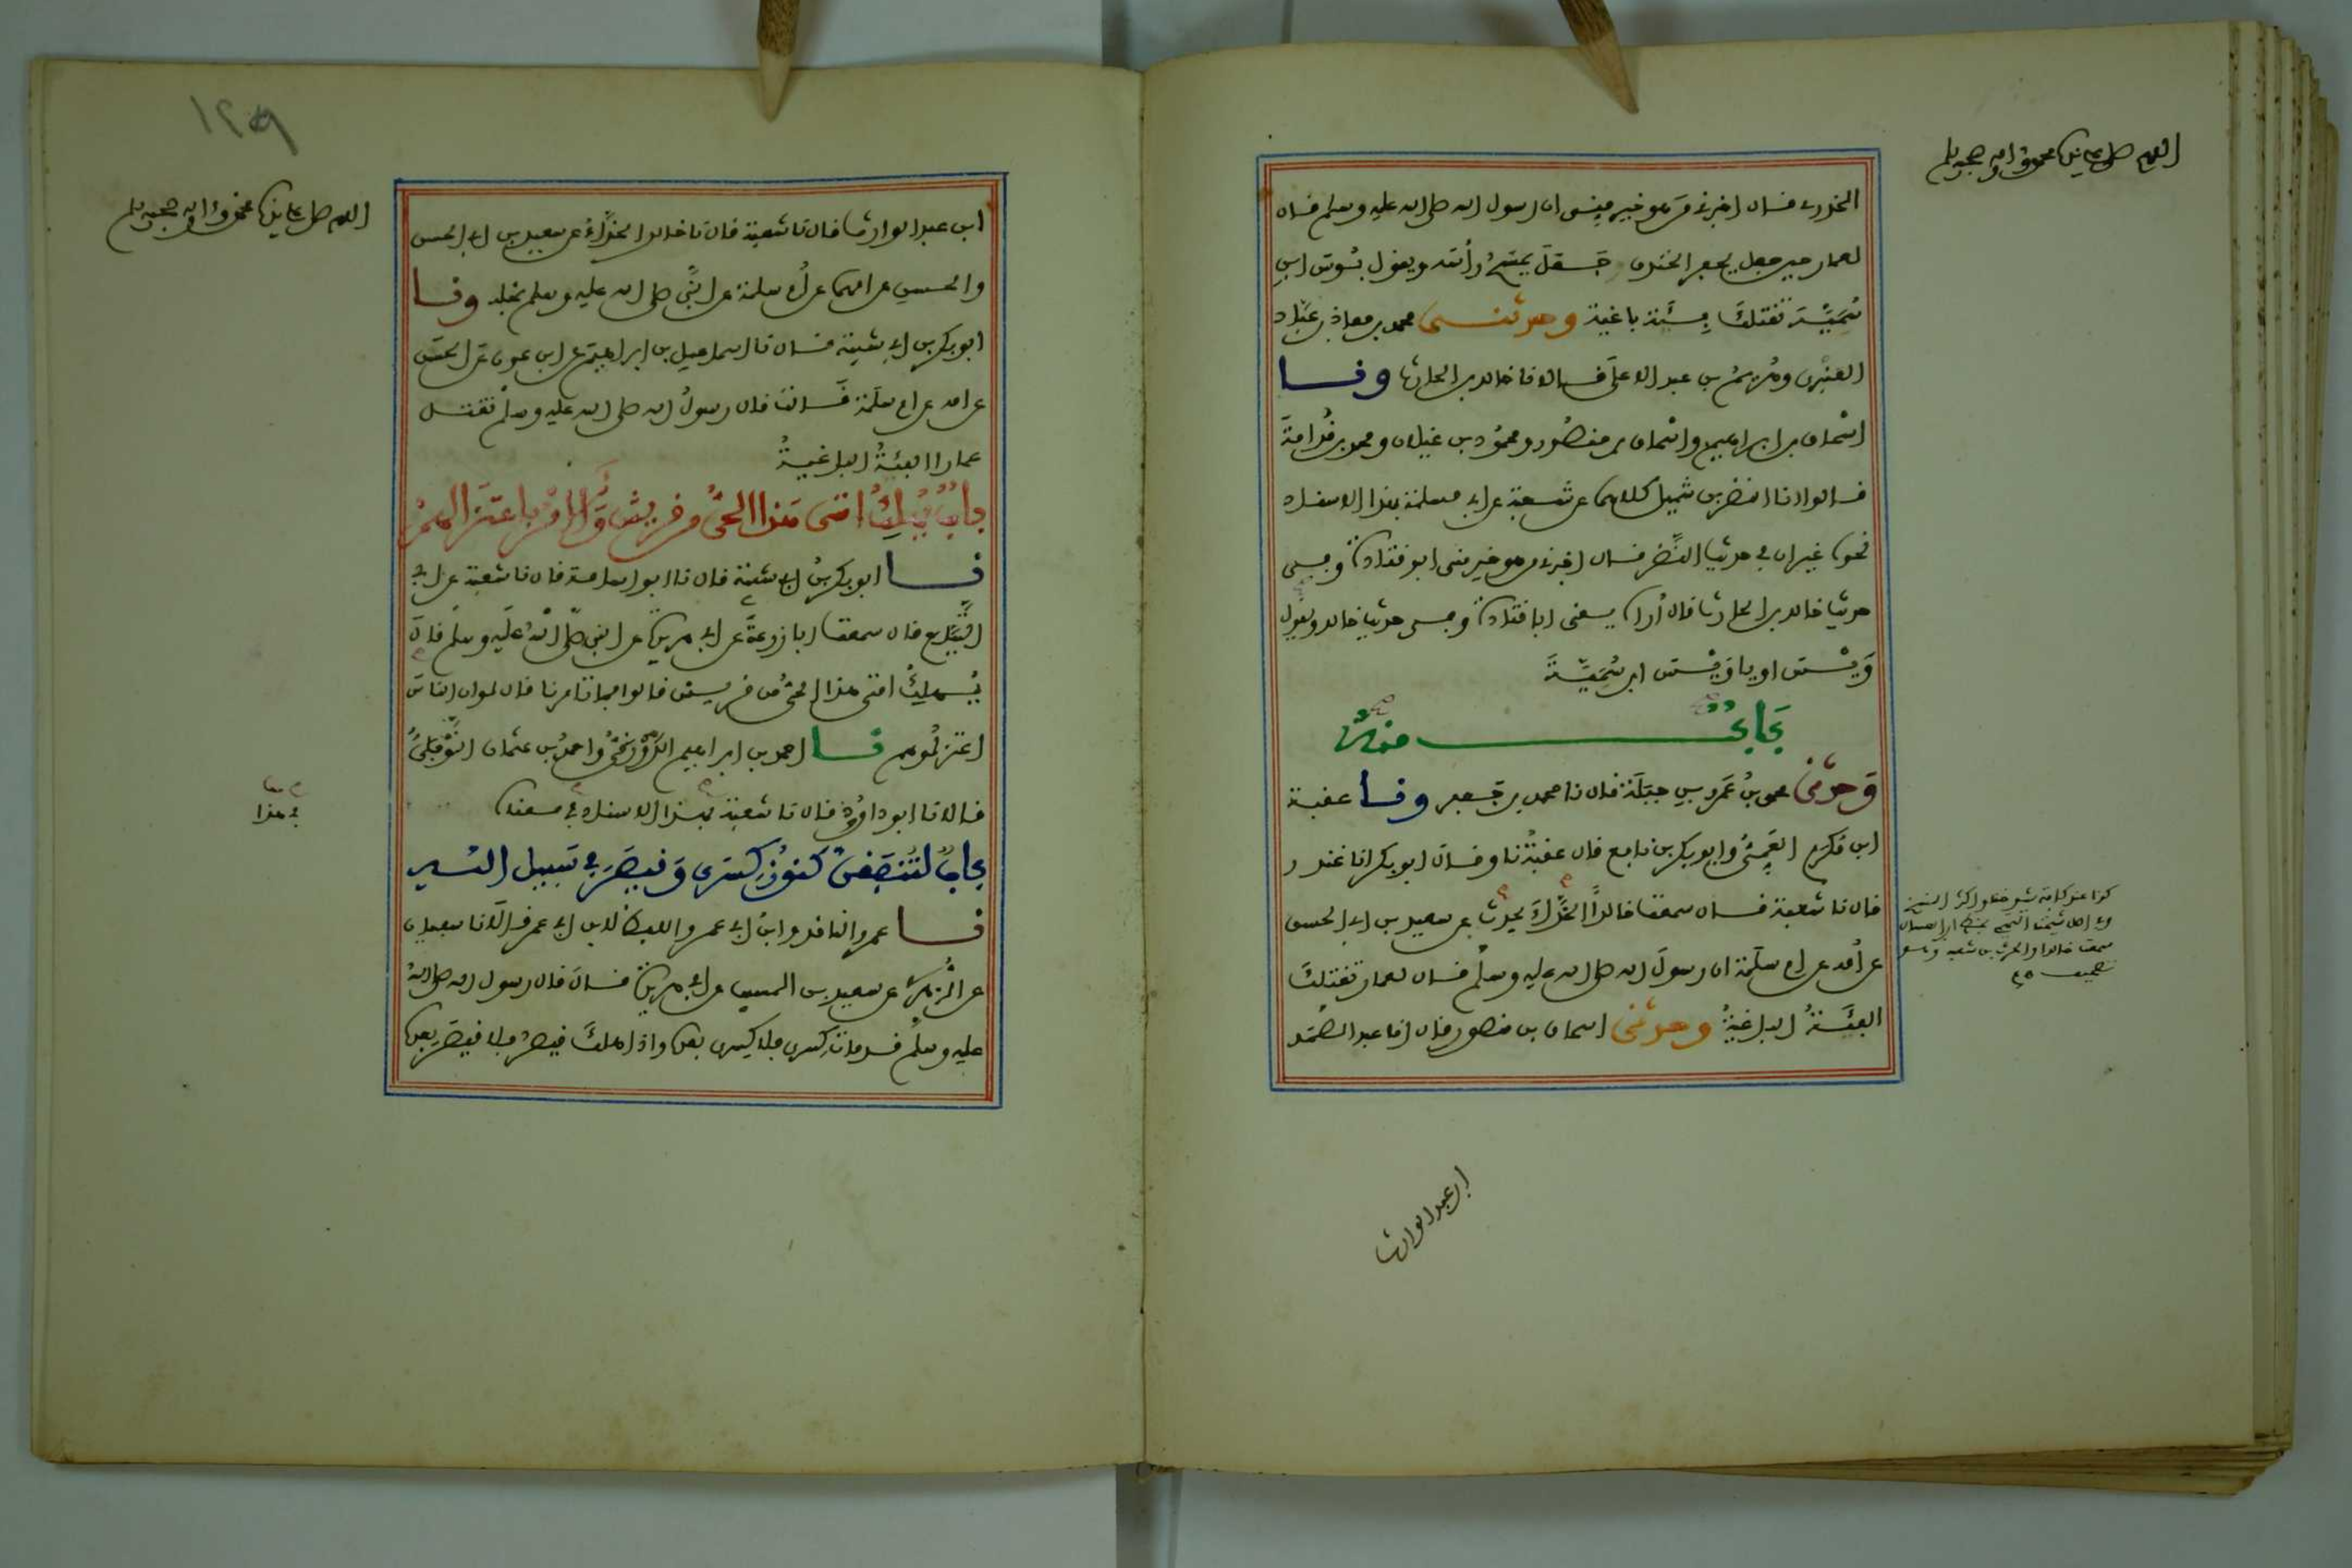 اللهم صل على سيدنا محمد وآله وصحبه وسلم
الخدري قال اخبرني من هو خير مني ان رسول الله صلى الله عليه وسلم قال
لعمار حين جعل يحفر الخندق جعل يمسح رأسه ويقول بؤس ابن
سمية تقتلك فئة باغية وحدثني محمد بن معاذ بن عباد
العنبري وهريم بن عبد الاعلى قالا نا خالد بن الحارث ونا
اسحاق بن ابراهيم واسحاق بن منصور ومحمود بن غيلان ومحمد بن قدامة
قالوا انا النضر بن شميل كلاهما عن شعبة عن ابي مسلمة بهذا الاسناد
نحوه غير ان في حديث النضر قال اخبرني من هو خير مني ابو قتادة وفي
حديث خالد بن الحارث قال أراه يعني ابا قتادة وفي حديث خالد ويقول
وَيْسَ او يا وَيْسَ ابن سُمَيَّةَ
بَابٌ منه
وَحدثني محمد بنُ عَمرو بن جبَلَة قال نا محمد بن جعفر ونا عقبة
ابن مُكرَم العَمِّيُّ وابو بكر بن نافع قال عقبةُ نا وقال ابو بكر انا غندر
قال نا شعبة قال سمعت خالداً الحذَّاءَ يحدث عن سعيد بن ابي الحسن
عن أمه عن ام سلمة ان رسولَ الله صلى الله عليه وسلم قال لعمار تقتلك
الفئَةُ الباغيةُ وحدثني اسحاق بن منصور قال انا عبد الصمد
سمعت خالدا والحرث بن شعبة
تصحيف
ابن عبد الوارث
١٢٩
اللهم صل على سيدنا محمد وآله وصحبه وسلم
ابن عبد الوارث قال نا شعبة قال نا خالد الحذَّاءُ عن سعيد بن ابي الحسن
والحسن عن امهما عن أم سلمة عن النبي صلى الله عليه وسلم بمثله ونا
ابو بكر بن ابي شيبة قال نا اسماعيل بن ابراهيم عن ابن عون عن الحسن
عن امه عن ام سلمة قالت قال رسولُ الله صلى الله عليه وسلم تقتل
عمارا الفئةُ الباغيةُ
بابٌ يُهْلِكُ امتي هذا الحيُّ من قريش وَالامْر باعتزَالهمْ
نا ابو بكر بنُ ابي شيبة قال نا ابو اسامة قال نا شعبة عن ابي
التَّيَّاح قال سمعت ابا زرعةَ عن ابي هريرة عن النبي صَلى اللهُ علَيه وسلم قالَ
يُهلِكُ امتي هذا الحيُّ من قريش قالوا فما تامرنا قال لو ان الناسَ
اعتزلُوهم نا احمد بن ابراهيم الدَّوْرَقيُّ واحمدُ بن عثمان النَّوْفليُّ
قالا نا ابو داوُود قال نا شعبة بهذا الاسناد في معناه
في هذا
بابٌ لتُنفَقنَّ كنوُزُ كسرَى وَقيصَرَ في سَبيل الله
نا عمرو الناقد وابنُ ابي عمر واللفظ لابن ابي عمر قالا نا سفيان
عن الزُّهري عن سعيد بن المسيب عن ابي هريرة قالَ قال رسول الله صلى اللهُ
عليه وسلم قد مات كسرى فلا كِسرى بعده واذا هلكَ قيصرُ فلا قيصَرَ بعده